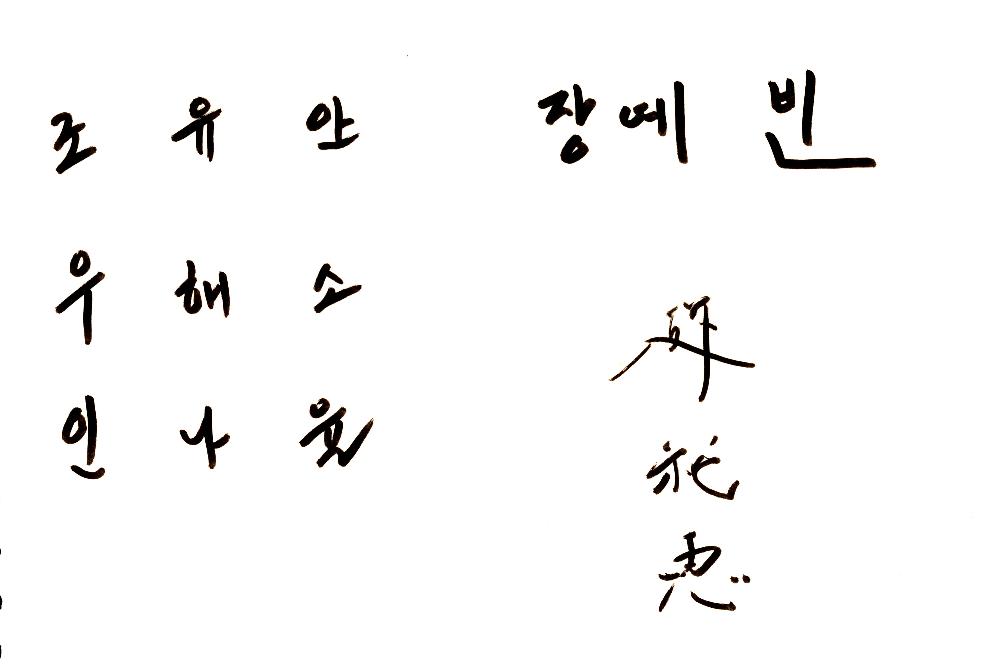 조 유 안
장 예 빈
우 해 소
인 나 윤
惠